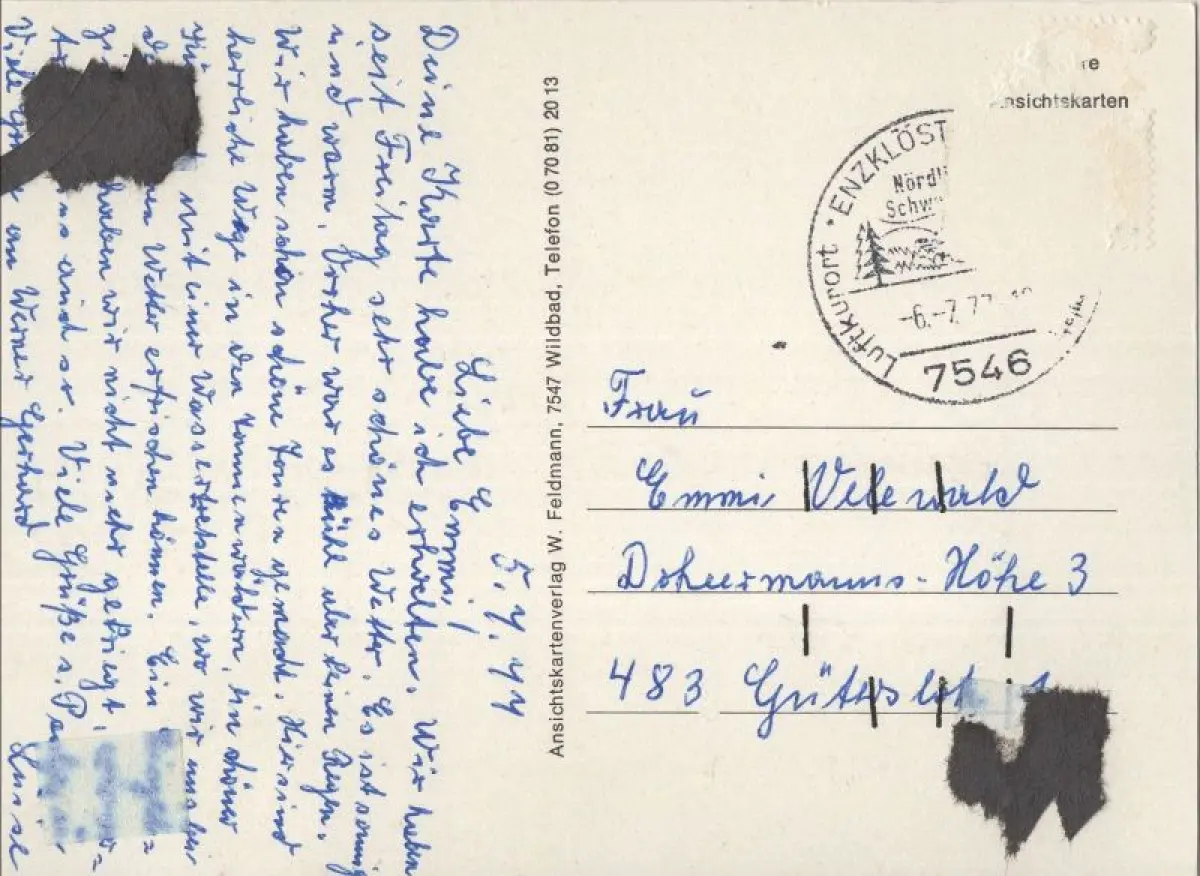 5.7.77
Liebe Emmi!
Deine Karte habe ich erhalten. Wir haben
seit Freitag sehr schönes Wetter. Es ist sonnig
und warm. Vorher war es kühl aber keinen Regen.
Wir haben schon schöne Touren gemacht. Hier sind
herrliche Wege in den Tannenwäldern, ein schöner
mit einer Wassertretstelle, wo wir uns bei
Wetter erfrischen können. Ein
haben wir nicht mehr gekriegt,
uns auch so. Viele Grüße s.
Viele an Werner Gerhard Luise
Ansichtskartenverlag W. Feldmann, 7547 Wildbad, Telefon (0 70 81) 20 13
Ansichtskarten
Luftkurort * ENZKLÖST
Nördl
Schw
-6.-7.77
7546
Frau
Emmi
Höhe 3
483 Gütersloh 1